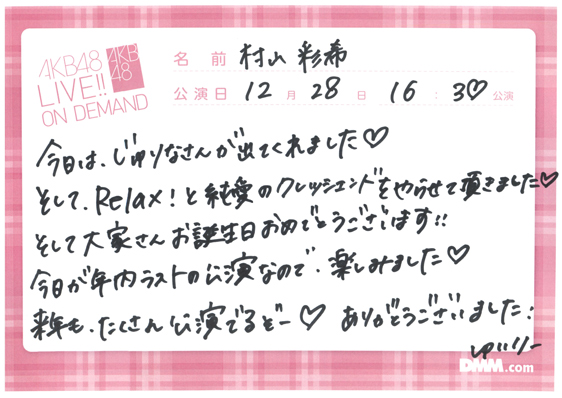 AKB48
LIVE!!
ON DEMAND
AKB
48
名 前 村山 彩希
公演日 12 月 28 日 16 : 30 公演
今日は、じゅりなさんが出てくれました♡
そして、Relax!と純愛のクレッシェンドをやらせて頂きました♡
そして大家さんお誕生日おめでとうございます!!
今日が年内ラストの公演なので、楽しみました♡
来年も、たくさん公演でるぞー♡ ありがとうございました:
ゆいりー
DMM.com